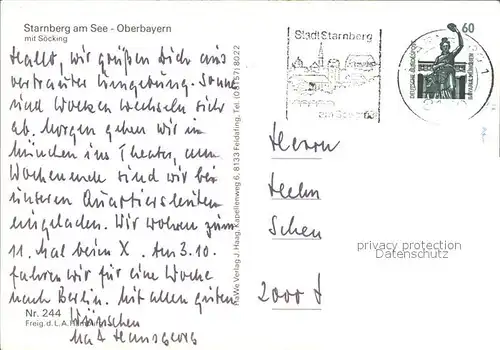 Starnberg am See - Oberbayern
mit Söcking
Hallo, wir grüßen Dich aus
vertrauter Umgebung. Sonne
und Wolken wechseln sich
ab. Morgen gehen wir in
München ins Theater, am
Wochenende sind wir bei
unseren Quartiersleuten
eingeladen. Wir wohnen zum
11. Mal beim X. Am 3.10.
fahren wir für eine Woche
nach Berlin. Mit allen guten
Wünschen
Hansgeorg
Nr. 244
Freig. d. L.A.
HaWe Verlag J. Haag, Kapellenweg 6, 8133 Feldafing, Tel. (08157) 8022
Stadt Starnberg
am See
60
DEUTSCHE BUNDESPOST
BAVARIA MÜNCHEN
Herrn
2000
privacy protection
Datenschutz